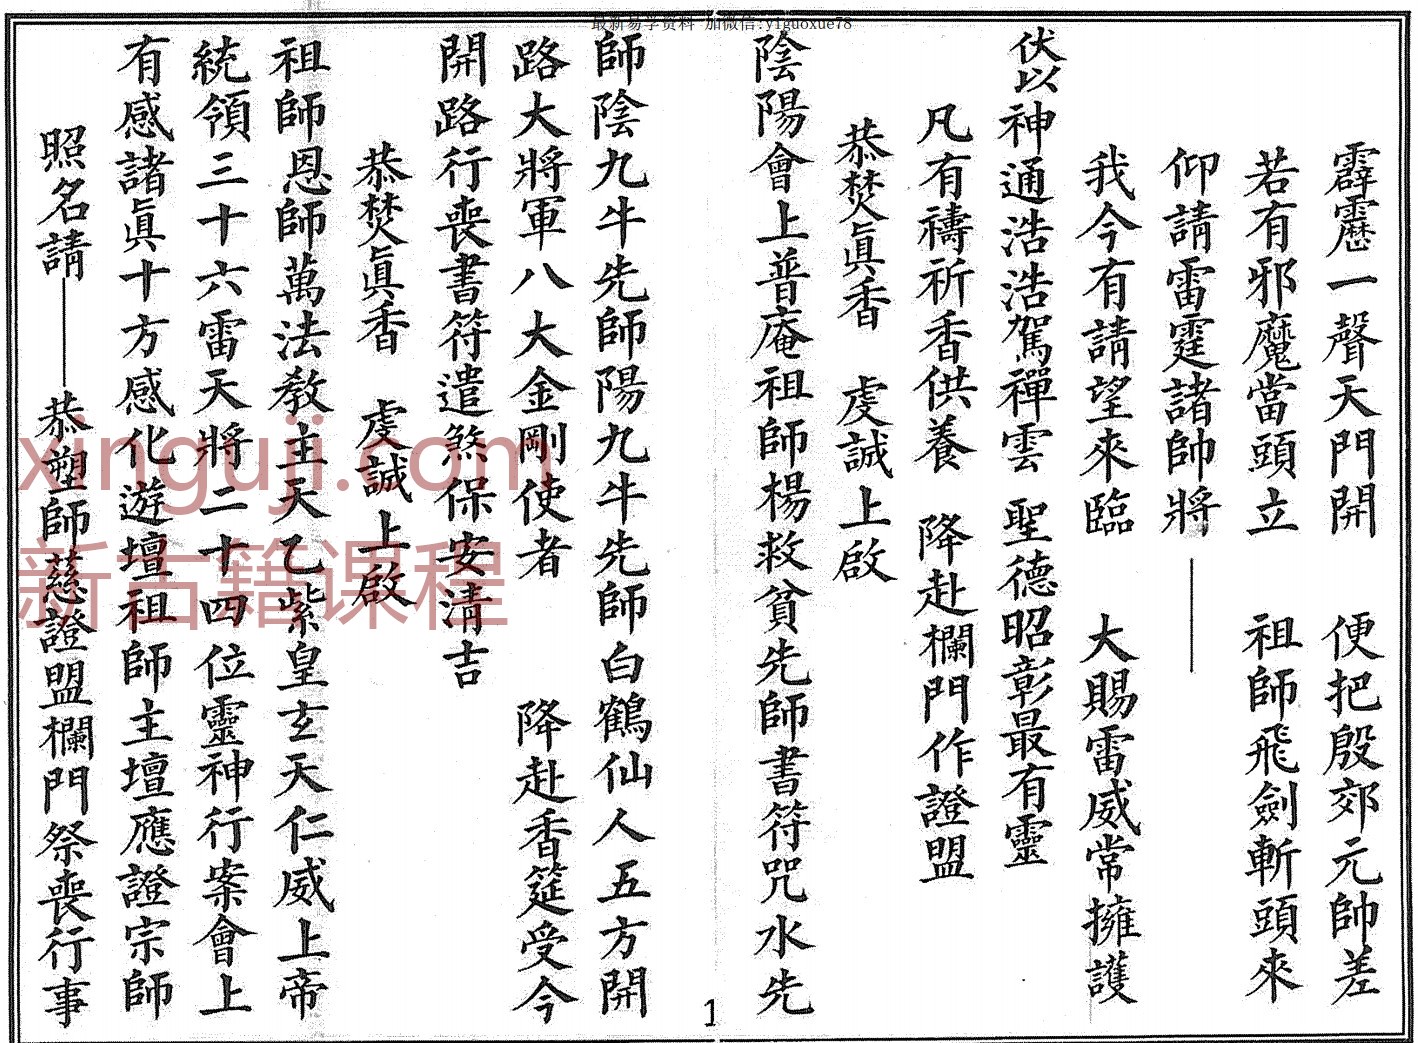 最新易学资料 加微信:yiguoxue78
霹靂一聲天門開 便把殷郊元帥差
若有邪魔當頭立 祖師飛劍斬頭來
仰請雷霆諸帥將——
我今有請望來臨 大賜雷威常擁護
伏以神通浩浩駕禪雲 聖德昭彰最有靈
凡有禱祈香供養 降赴欄門作證盟
恭焚眞香 虔誠上啟
陰陽會上普庵祖師楊救貧先師書符咒水先
師陰九牛先師陽九牛先師白鶴仙人五方開
路大將軍八大金剛使者 降赴香筵受今
開路行喪書符遣煞保安清吉
恭焚眞香 虔誠上啟
祖師恩師萬法教主天乙紫皇玄天仁威上帝
統領三十六雷天將二十四位靈神行案會上
有感諸眞十方感化遊壇祖師主壇應證宗師
照名請——恭塑師慈證盟欄門祭喪行事
1
xinguji.com
新古籍课程